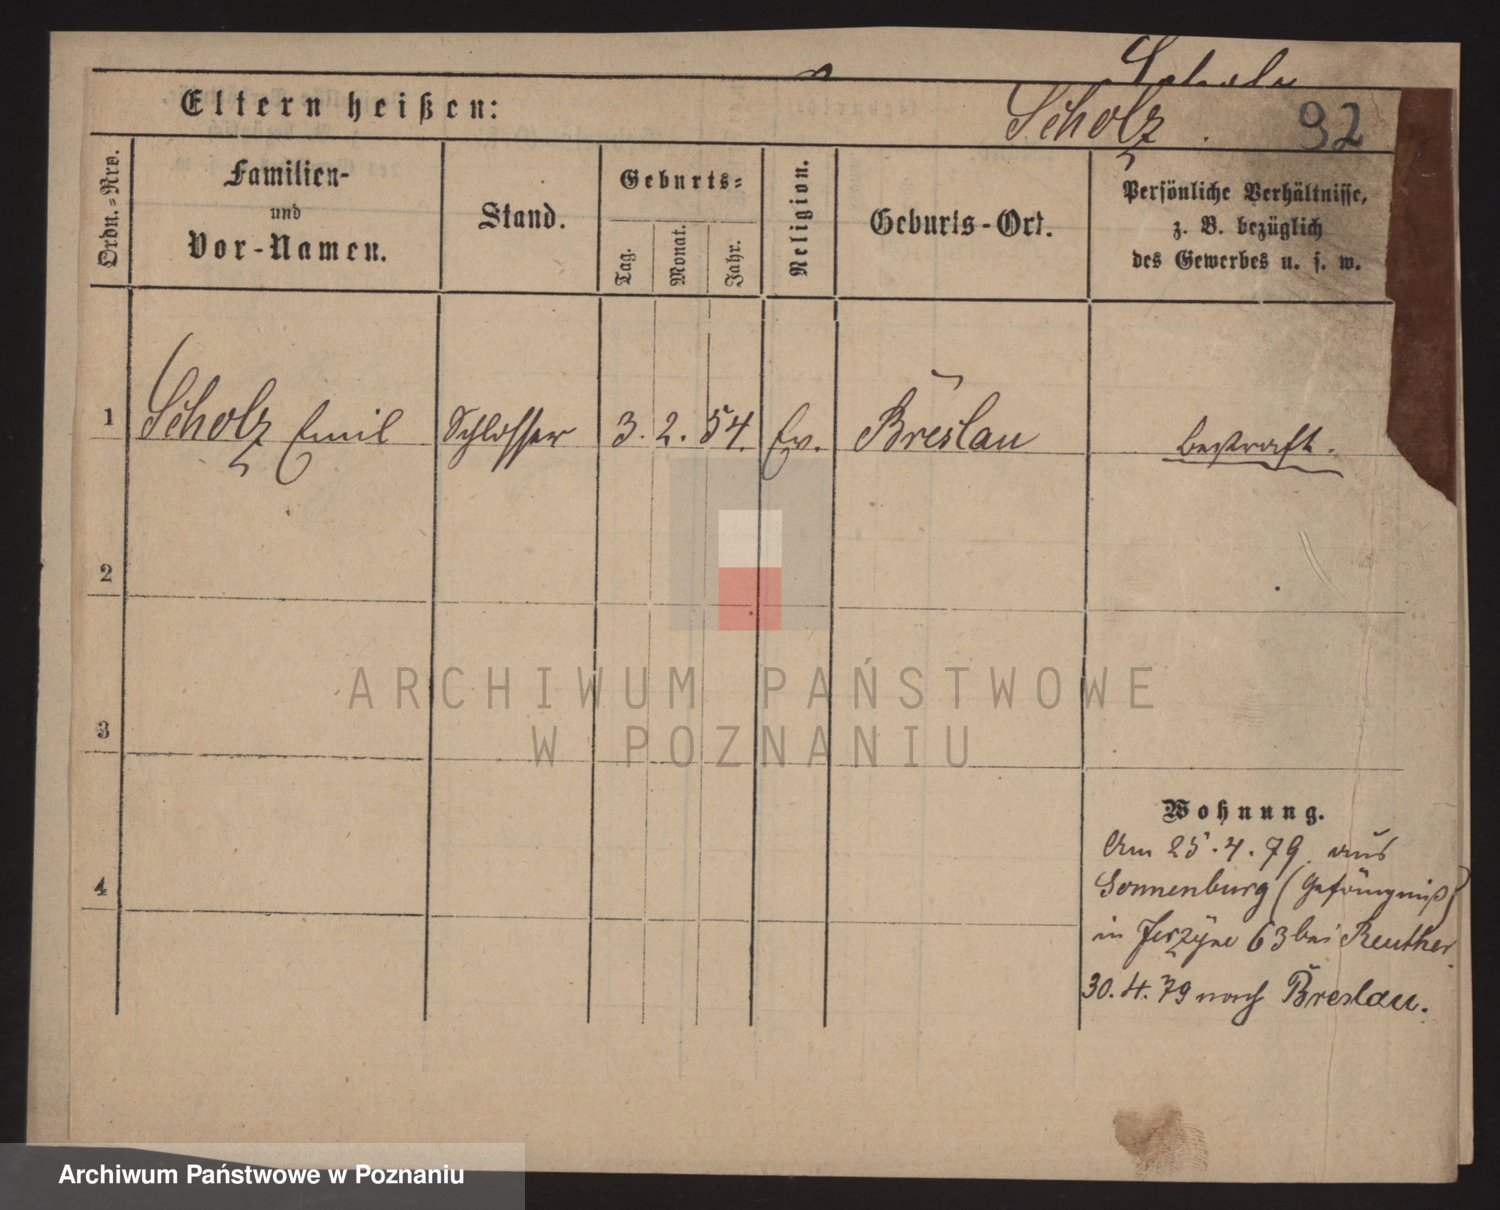 Scholz
Eltern heißen:
Scholz.
92
Ordn.=Nro.
Familien-
und
Vor-Namen.
Stand.
Geburts=
Tag.
Monat.
Jahr.
Religion.
Geburts-Ort.
Persönliche Verhältnisse,
z. B. bezüglich
des Gewerbes u. s. w.
1 Scholz Emil Schlosser 3. 2. 54. Ev. Breslau bestraft.
2
3
4
Wohnung.
Am 25.4.79. aus
Sonnenburg (Gefängniß)
in Jerzyce 63 bei Reuther.
30.4.79 nach Breslau.
ARCHIWUM PAŃSTWOWE
W POZNANIU
Archiwum Państwowe w Poznaniu